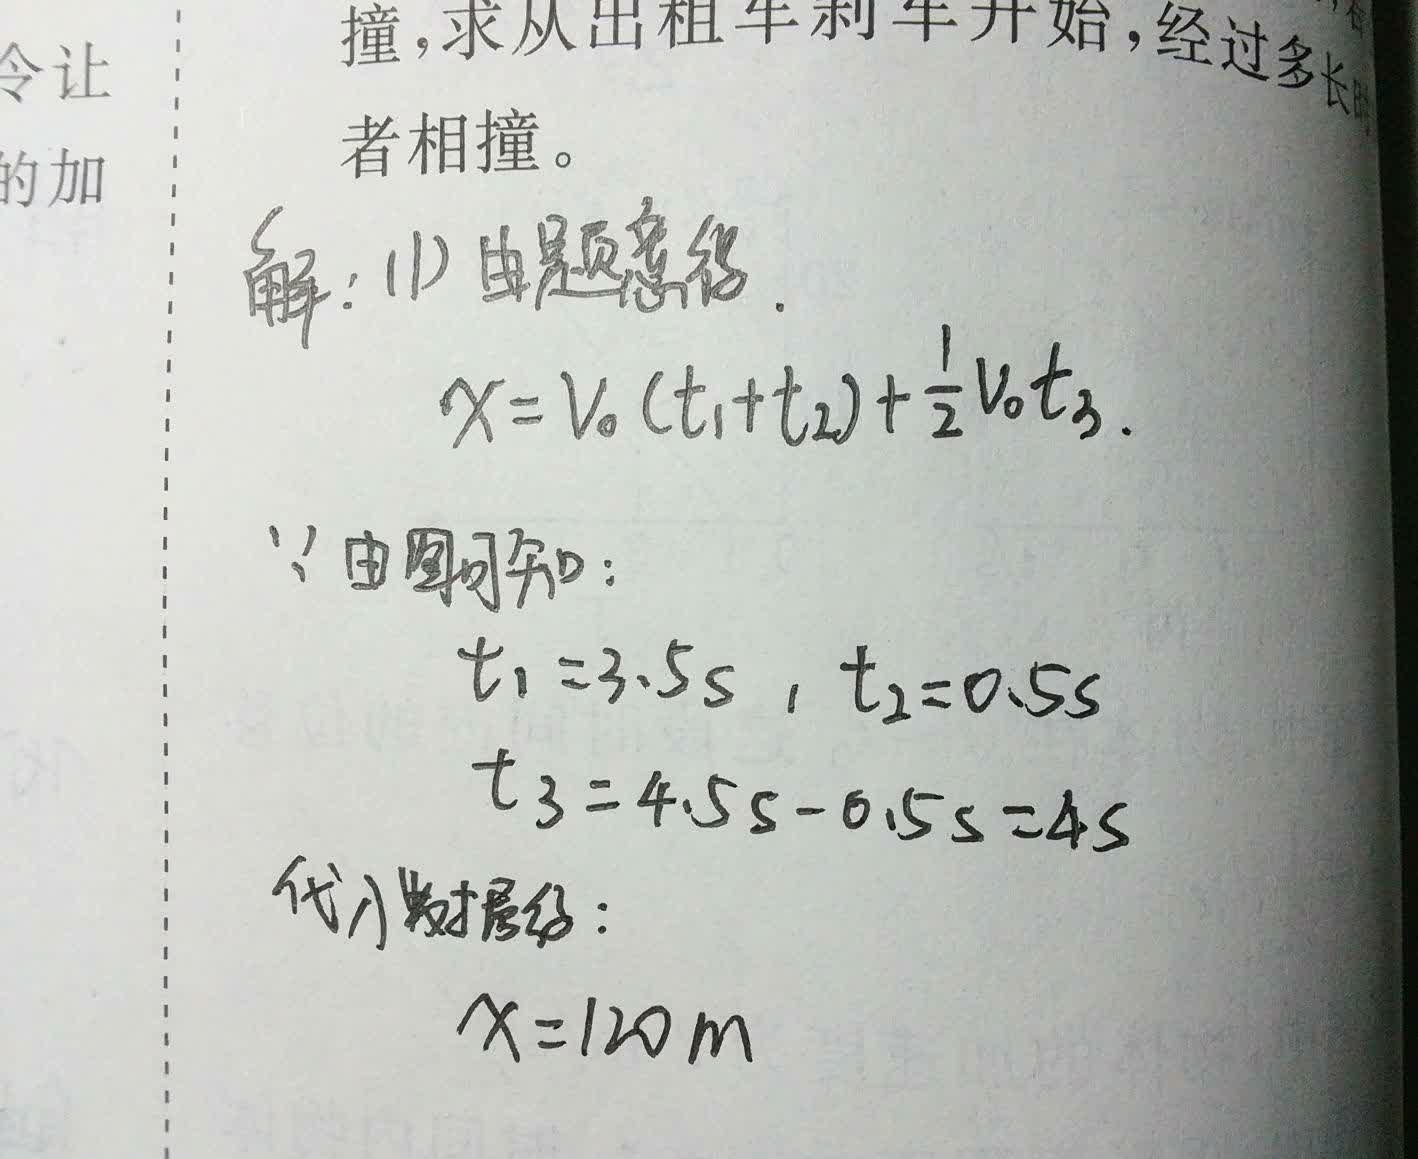 撞,求从出租车刹车开始,经过多长时
者相撞。
令让
的加
解:(1)由题意得.
x=V₀(t₁+t₂)+\frac{1}{2}V₀t₃.
∵由图可知:
t₁=3.5s,t₂=0.5s
t₃=4.5s-0.5s=4s
代入数据得:
x=120m